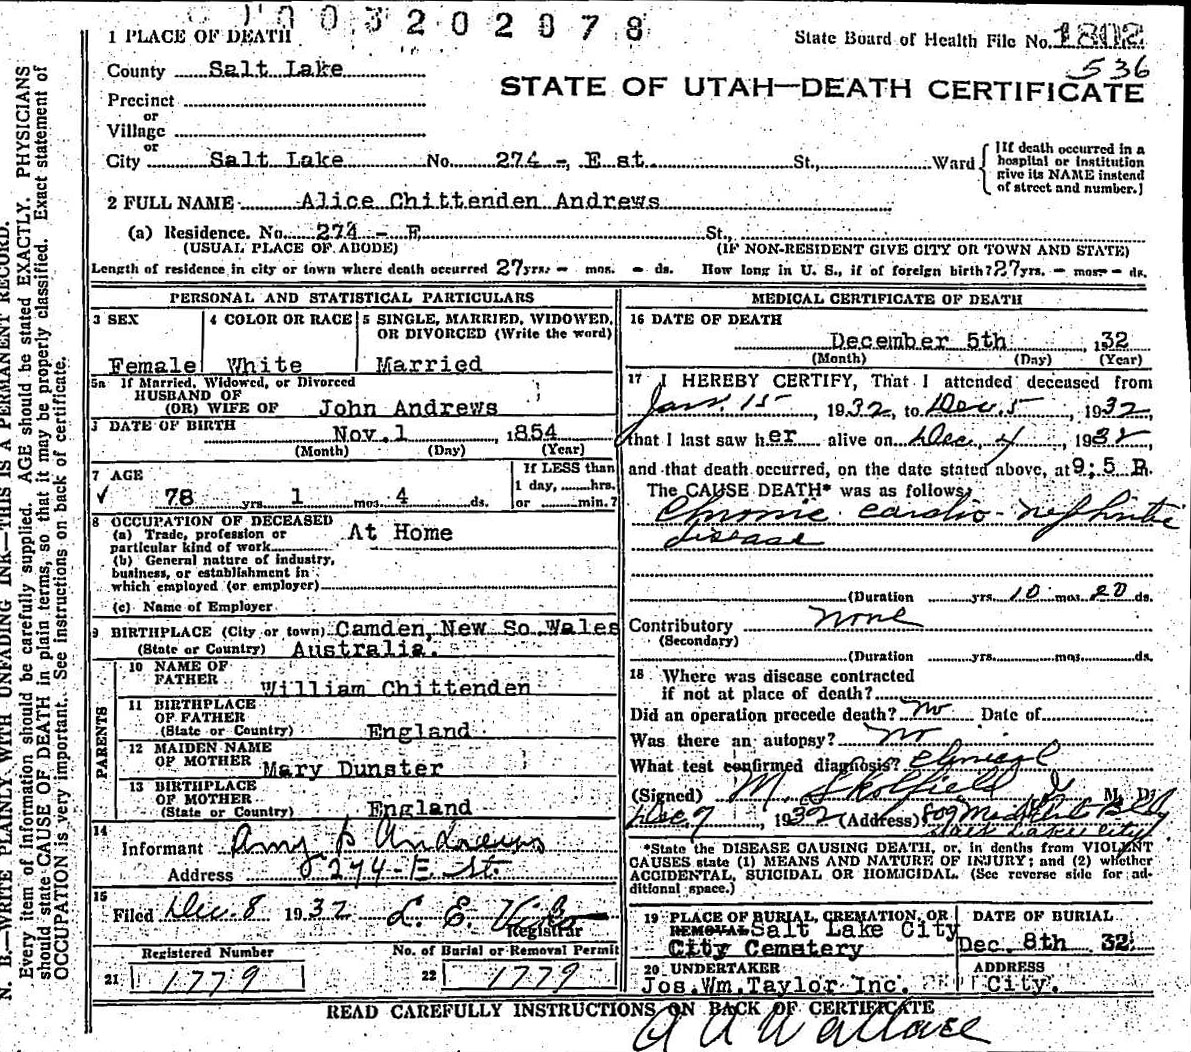 003202078
1 PLACE OF DEATH
State Board of Health File No. 1802
536
County Salt Lake
STATE OF UTAH—DEATH CERTIFICATE
Precinct
or
Village
or
City Salt Lake No. 274 - E st. St., Ward
[If death occurred in a hospital or institution give its NAME instead of street and number.]
2 FULL NAME Alice Chittenden Andrews
(a) Residence. No. 274 - E St.,
(USUAL PLACE OF ABODE) (IF NON-RESIDENT GIVE CITY OR TOWN AND STATE)
Length of residence in city or town where death occurred 27 yrs. - mos. - ds. How long in U. S., if of foreign birth? 27 yrs. - mos. - ds.
PERSONAL AND STATISTICAL PARTICULARS
3 SEX
Female
4 COLOR OR RACE
White
5 SINGLE, MARRIED, WIDOWED, OR DIVORCED (Write the word)
Married
5a If Married, Widowed, or Divorced
HUSBAND OF
(OR) WIFE OF John Andrews
DATE OF BIRTH Nov. 1, 1854
(Month) (Day) (Year)
7 AGE
78 yrs. 1 mos. 4 ds.
If LESS than
1 day, hrs.
or min.?
8 OCCUPATION OF DECEASED
(a) Trade, profession or
particular kind of work At Home
(b) General nature of industry,
business, or establishment in
which employed (or employer)
(c) Name of Employer
9 BIRTHPLACE (City or town) Camden, New So. Wales
(State or Country) Australia.
PARENTS
10 NAME OF
FATHER William Chittenden
11 BIRTHPLACE
OF FATHER
(State or Country) England
12 MAIDEN NAME
OF MOTHER Mary Dunster
13 BIRTHPLACE
OF MOTHER
(State or Country) England
14
Informant Amy Andrews
Address 274-E St.
15
Filed Dec. 8 1932 L. E.
Registrar
Registered Number
21 1779
No. of Burial or Removal Permit
22 1779
MEDICAL CERTIFICATE OF DEATH
16 DATE OF DEATH
December 5th, 1932
(Month) (Day) (Year)
17 I HEREBY CERTIFY, That I attended deceased from
Jan. 15, 1932, to Dec. 5, 1932,
that I last saw her alive on Dec. 4, 1932,
and that death occurred, on the date stated above, at 9:5 P.
The CAUSE DEATH* was as follows:
Chronic cardio-nephritic
disease
(Duration yrs. 10 mos. 20 ds.
Contributory none
(Secondary)
(Duration yrs. mos. ds.
18 Where was disease contracted
if not at place of death?
Did an operation precede death? no Date of
Was there an autopsy? no
What test confirmed diagnosis? Clinical
(Signed) M. Skolfield M. D.
Dec 7, 1932 (Address) Bldg
Salt Lake City
*State the DISEASE CAUSING DEATH, or, in deaths from VIOLENT
CAUSES state (1) MEANS AND NATURE OF INJURY; and (2) whether
ACCIDENTAL, SUICIDAL OR HOMICIDAL. (See reverse side for additional space.)
19 PLACE OF BURIAL, CREMATION, OR
REMOVAL Salt Lake City
City Cemetery
DATE OF BURIAL
Dec. 8th 32
20 UNDERTAKER
Jos. Wm. Taylor Inc.
ADDRESS
City.
READ CAREFULLY INSTRUCTIONS ON BACK OF CERTIFICATE
Wallace
N. B.—WRITE PLAINLY WITH UNFADING INK—THIS IS A PERMANENT RECORD.
Every item of information should be carefully supplied. AGE should be stated EXACTLY. PHYSICIANS
should state CAUSE OF DEATH in plain terms, so that it may be properly classified. Exact statement of
OCCUPATION is very important. See instructions on back of certificate.